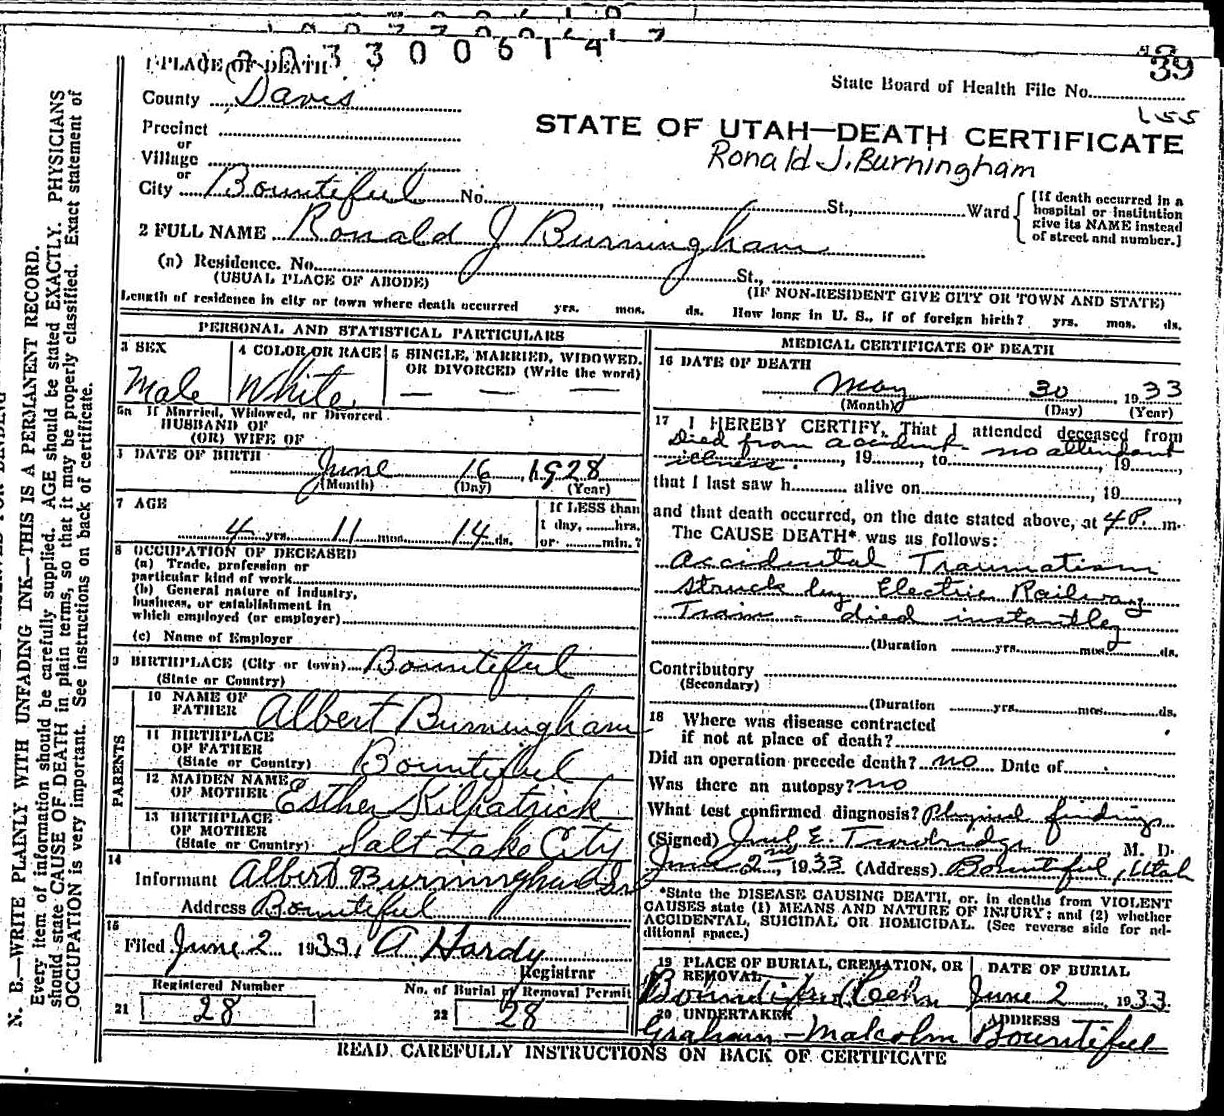 3 3 0 0 6 1 4
39
1 PLACE OF DEATH
State Board of Health File No.
County Davis
155
Precinct
STATE OF UTAH—DEATH CERTIFICATE
or
Ronald J. Burningham
Village
or
City Bountiful No. , St., Ward
[If death occurred in a
hospital or institution
give its NAME instead
of street and number.]
2 FULL NAME Ronald J Burningham
(a) Residence. No. St.,
(USUAL PLACE OF ABODE) (IF NON-RESIDENT GIVE CITY OR TOWN AND STATE)
Length of residence in city or town where death occurred yrs. mos. ds. How long in U. S., if of foreign birth? yrs. mos. ds.
PERSONAL AND STATISTICAL PARTICULARS
3 SEX
Male
4 COLOR OR RACE
White
5 SINGLE, MARRIED, WIDOWED,
OR DIVORCED (Write the word)
— — —
5a If Married, Widowed, or Divorced
HUSBAND OF
(OR) WIFE OF
DATE OF BIRTH
June 16, 1928
(Month) (Day) (Year)
7 AGE
4 yrs. 11 mos. 14 ds.
If LESS than
1 day, hrs.
or min.?
8 OCCUPATION OF DECEASED
(a) Trade, profession or
particular kind of work
(b) General nature of industry,
business, or establishment in
which employed (or employer)
(c) Name of Employer
9 BIRTHPLACE (City or town) Bountiful
(State or Country)
PARENTS
10 NAME OF
FATHER Albert Burningham
11 BIRTHPLACE
OF FATHER
(State or Country) Bountiful
12 MAIDEN NAME
OF MOTHER Esther Kilpatrick
13 BIRTHPLACE
OF MOTHER
(State or Country) Salt Lake City
14
Informant Albert Burningham Sr
Address Bountiful
15
Filed June 2 1933, A Hardy
Registrar
Registered Number
21 28
No. of Burial or Removal Permit
22 28
MEDICAL CERTIFICATE OF DEATH
16 DATE OF DEATH
May 30, 1933
(Month) (Day) (Year)
17 I HEREBY CERTIFY, That I attended deceased from
Died from accident no attendant
illness. , 19 , to , 19 ,
that I last saw h alive on , 19 ,
and that death occurred, on the date stated above, at 4 P. m.
The CAUSE DEATH* was as follows:
Accidental Traumatism
struck by Electric Railway
Train - died instantley
(Duration yrs. mos. ds.
Contributory
(Secondary)
(Duration yrs. mos. ds.
18 Where was disease contracted
if not at place of death?
Did an operation precede death? no Date of
Was there an autopsy? no
What test confirmed diagnosis? Physical findings
(Signed) E. , M. D.
June 2nd, 1933 (Address) Bountiful, Utah
*State the DISEASE CAUSING DEATH, or, in deaths from VIOLENT
CAUSES state (1) MEANS AND NATURE OF INJURY; and (2) whether
ACCIDENTAL, SUICIDAL OR HOMICIDAL. (See reverse side for ad-
ditional space.)
19 PLACE OF BURIAL, CREMATION, OR
REMOVAL
Bountiful
DATE OF BURIAL
June 2, 1933.
20 UNDERTAKER
Graham-Malcolm
ADDRESS
Bountiful
READ CAREFULLY INSTRUCTIONS ON BACK OF CERTIFICATE
N. B.—WRITE PLAINLY WITH UNFADING INK—THIS IS A PERMANENT RECORD.
Every item of information should be carefully supplied. AGE should be stated EXACTLY. PHYSICIANS
should state CAUSE OF DEATH in plain terms, so that it may be properly classified. Exact statement of
OCCUPATION is very important. See instructions on back of certificate.